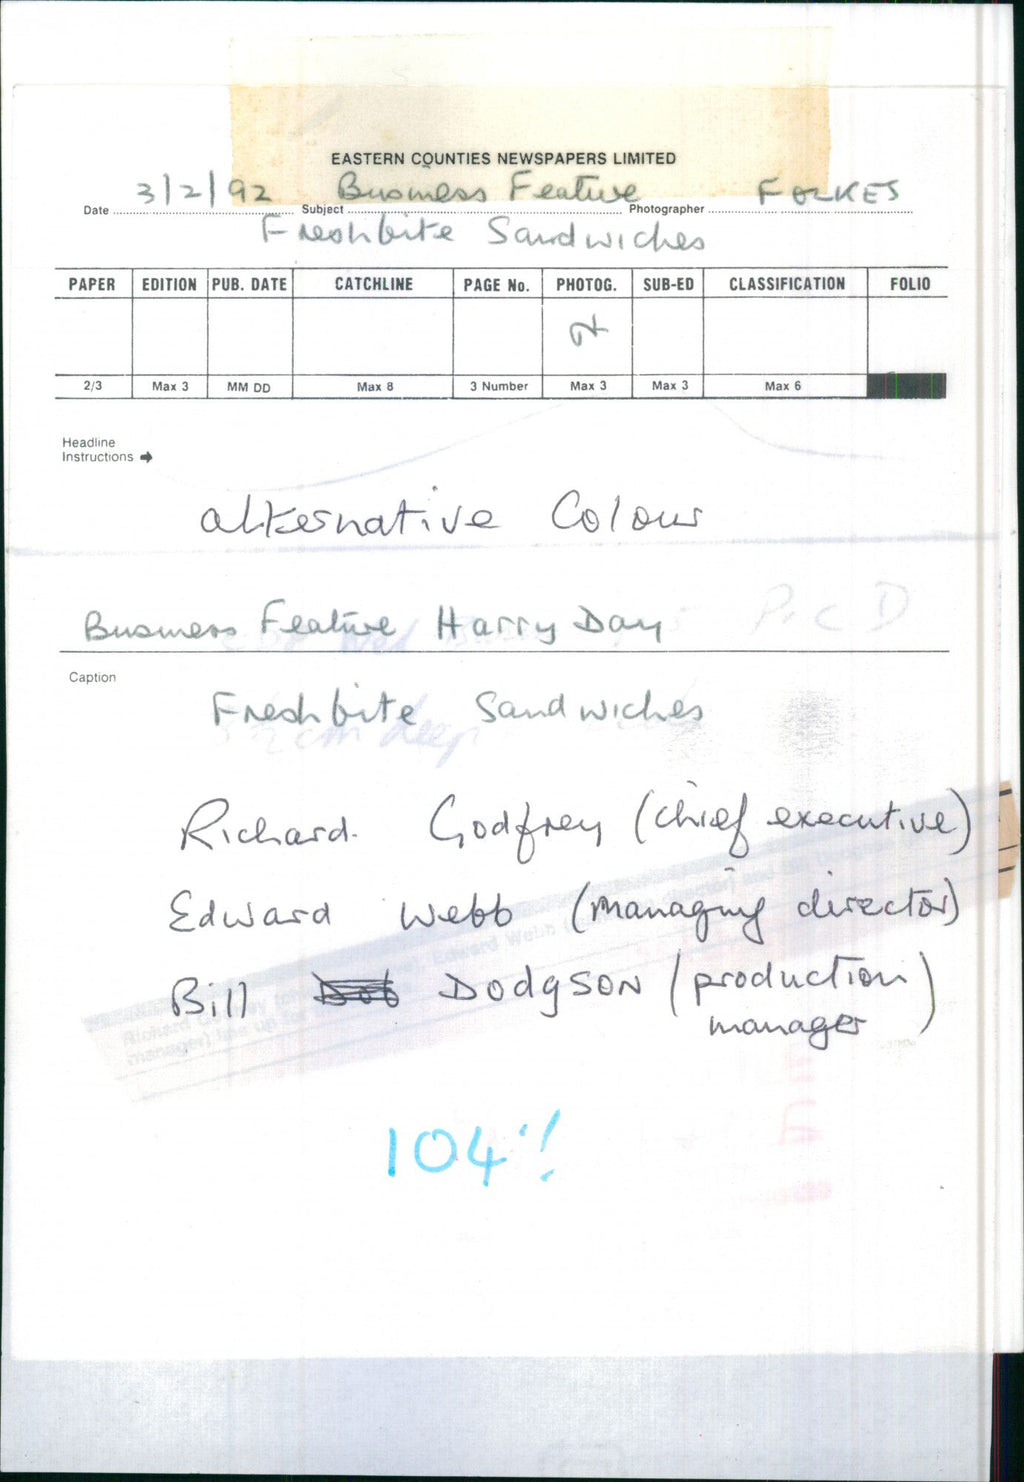 EASTERN COUNTIES NEWSPAPERS LIMITED
Date 3/2/92 Subject Business Feature Photographer FOLKES
Freshbite Sandwiches
PAPER EDITION PUB. DATE CATCHLINE PAGE No. PHOTOG. SUB-ED CLASSIFICATION FOLIO
2/3 Max 3 MM DD Max 8 3 Number Max 3 Max 3 Max 6
Headline
Instructions
alternative Colour
Business Feature Harry Day
Caption
Freshbite Sandwiches
Richard Godfrey (chief executive)
Edward Webb (managing director)
Bill Dodgson (production
manager)
104%